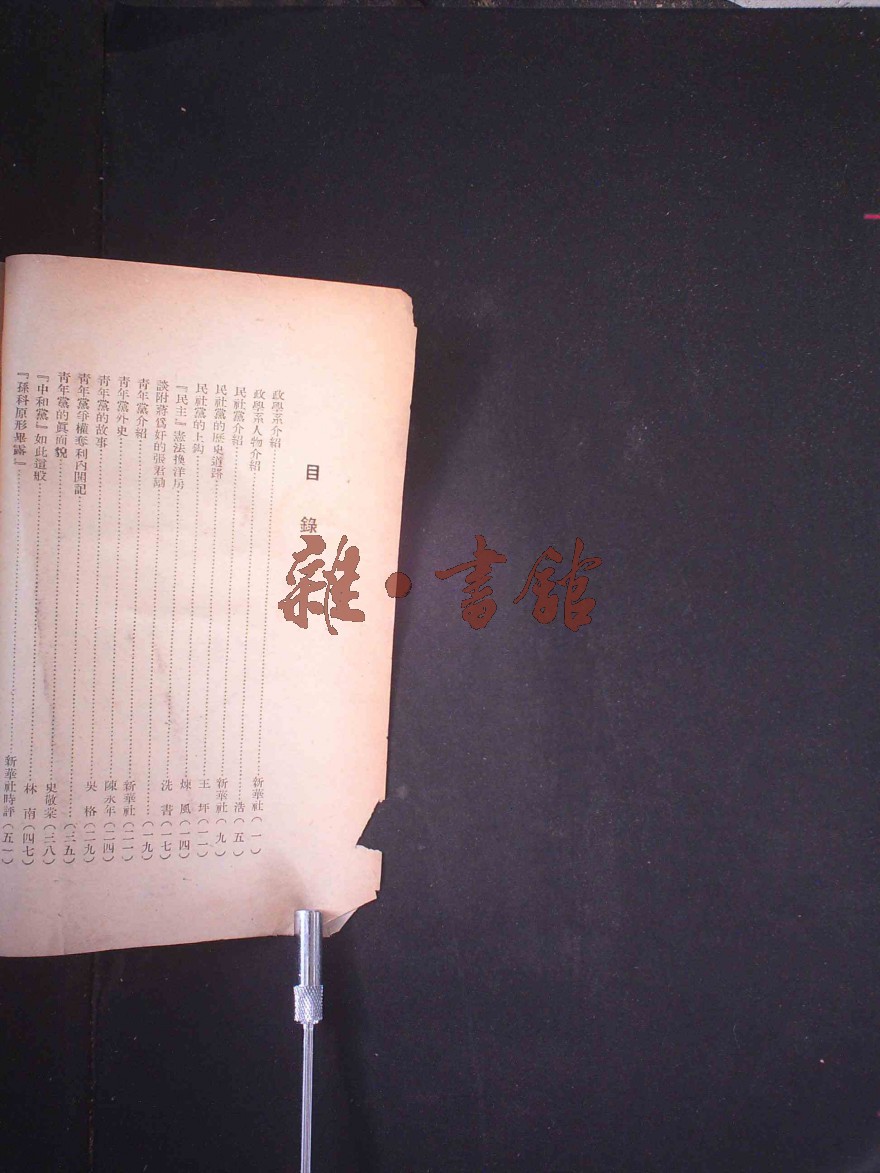 目錄
政學系介紹……新華社（一）
政學系人物介紹……浩（五）
民社黨介紹……新華社（九）
民社黨的歷史道路……王坪（一一）
民社黨的上鈎……煉風（一四）
『民主』憲法換洋房……洗書（一七）
談附蔣爲奸的張君勱……（一九）
青年黨介紹……新華社（二一）
青年黨外史……陳永年（二四）
青年黨的故事……吳格（二九）
青年黨爭權奪利內鬨記……（三五）
青年黨的眞面貌……史敬棠（三八）
『中和黨』如此這般……林南（四七）
『孫科原形畢露』……新華社時評（五一）
雜·書館